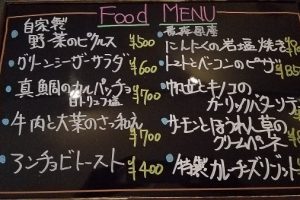 Food MENU
自家製
野菜のピクルス ¥500
グリーンシーザーサラダ ¥600
真鯛のカルパッチョ
白トリュフ塩 ¥700
牛肉と大葉のさっと和え ¥700
アンチョビトースト ¥400
にんにくの岩塩焼き
トマトとベーコンのピザ ¥85
キノコの
ガーリックバターソテ
サーモンとほうれん草の
クリームペンネ
特製カレーチーズリゾット